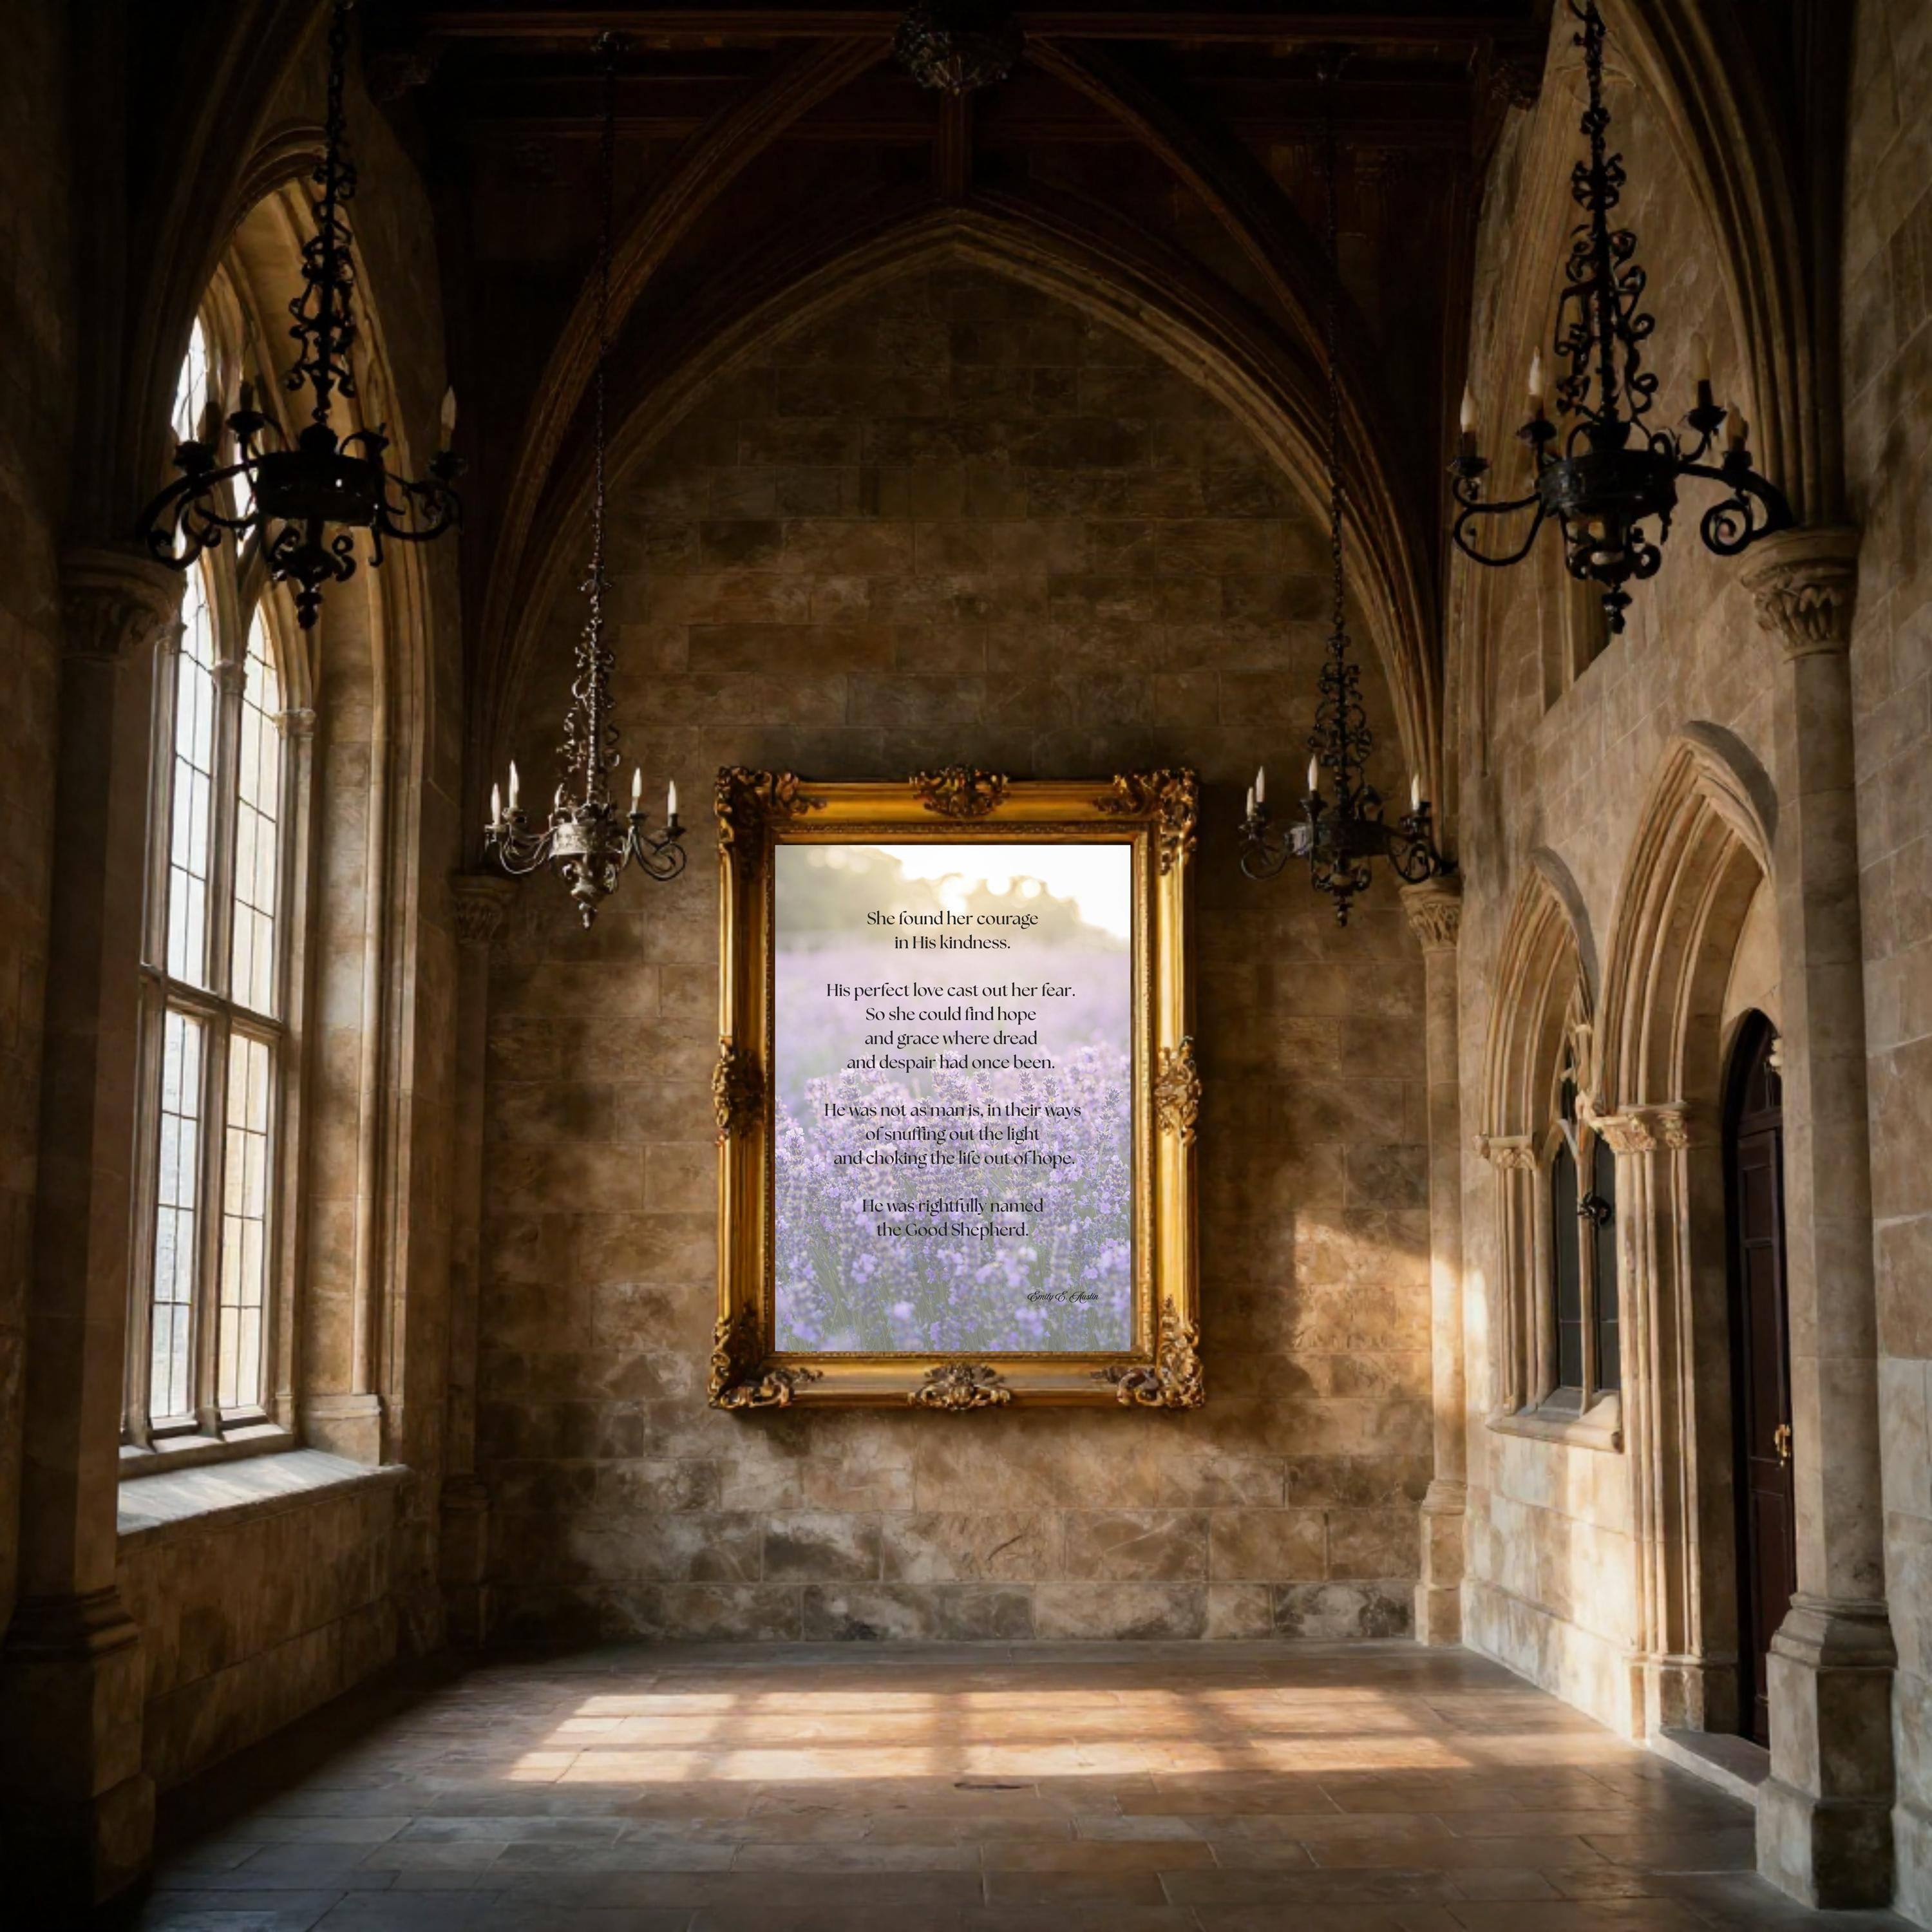 She found her courage
in His kindness.
His perfect love cast out her fear.
So she could find hope
and grace where dread
and despair had once been.
He was not as man is, in their ways
of snuffing out the light
and choking the life out of hope.
He was rightfully named
the Good Shepherd.
Emily E. Austin